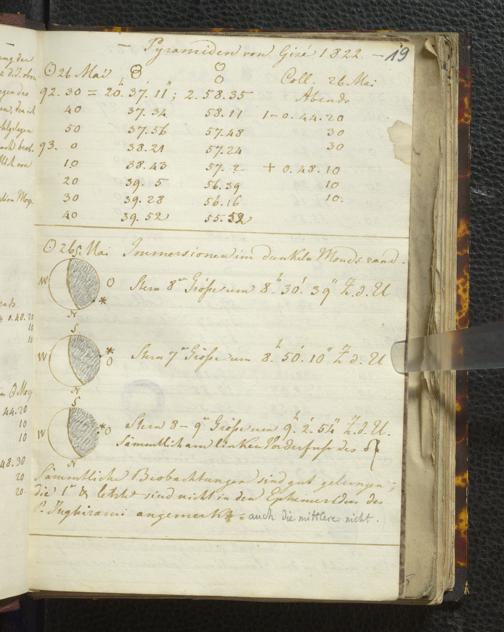 — Pyramiden von Gizé 1822. — 19
☉ 26 Mai Coll. 26 Mai
92.30 = 20.37.11; 2.58.35 Abends
40 37.34 58.11 1-0.44.20
50 37.56 57.48 30
93. 0 38.21 57.24 30
10 38.43 57. 2 + 0.48.10
20 39. 5 56.39 10
30 39.28 56.16 10.
40 39.52 55.52
☉ 26 Mai Immersionen im dunkeln Monds rand.
S
W O Stern 8ter Größe um 8h 30' 39" Z.d.U
*
N
S
W * O Stern 7ter Größe um 8h 50' 10" Z.d.U
N
S
W * O Stern 8-9 Größe um 9h 2' 54" Z.d.U.
N Sämmtlich am linken Vorderfuß des ♌
Sämmtliche Beobachtungen sind gut gelungen;
die 1te & letzte sind nicht in den Ephemeriden des
P. Inghirami angemerkt - auch die mittlere nicht.